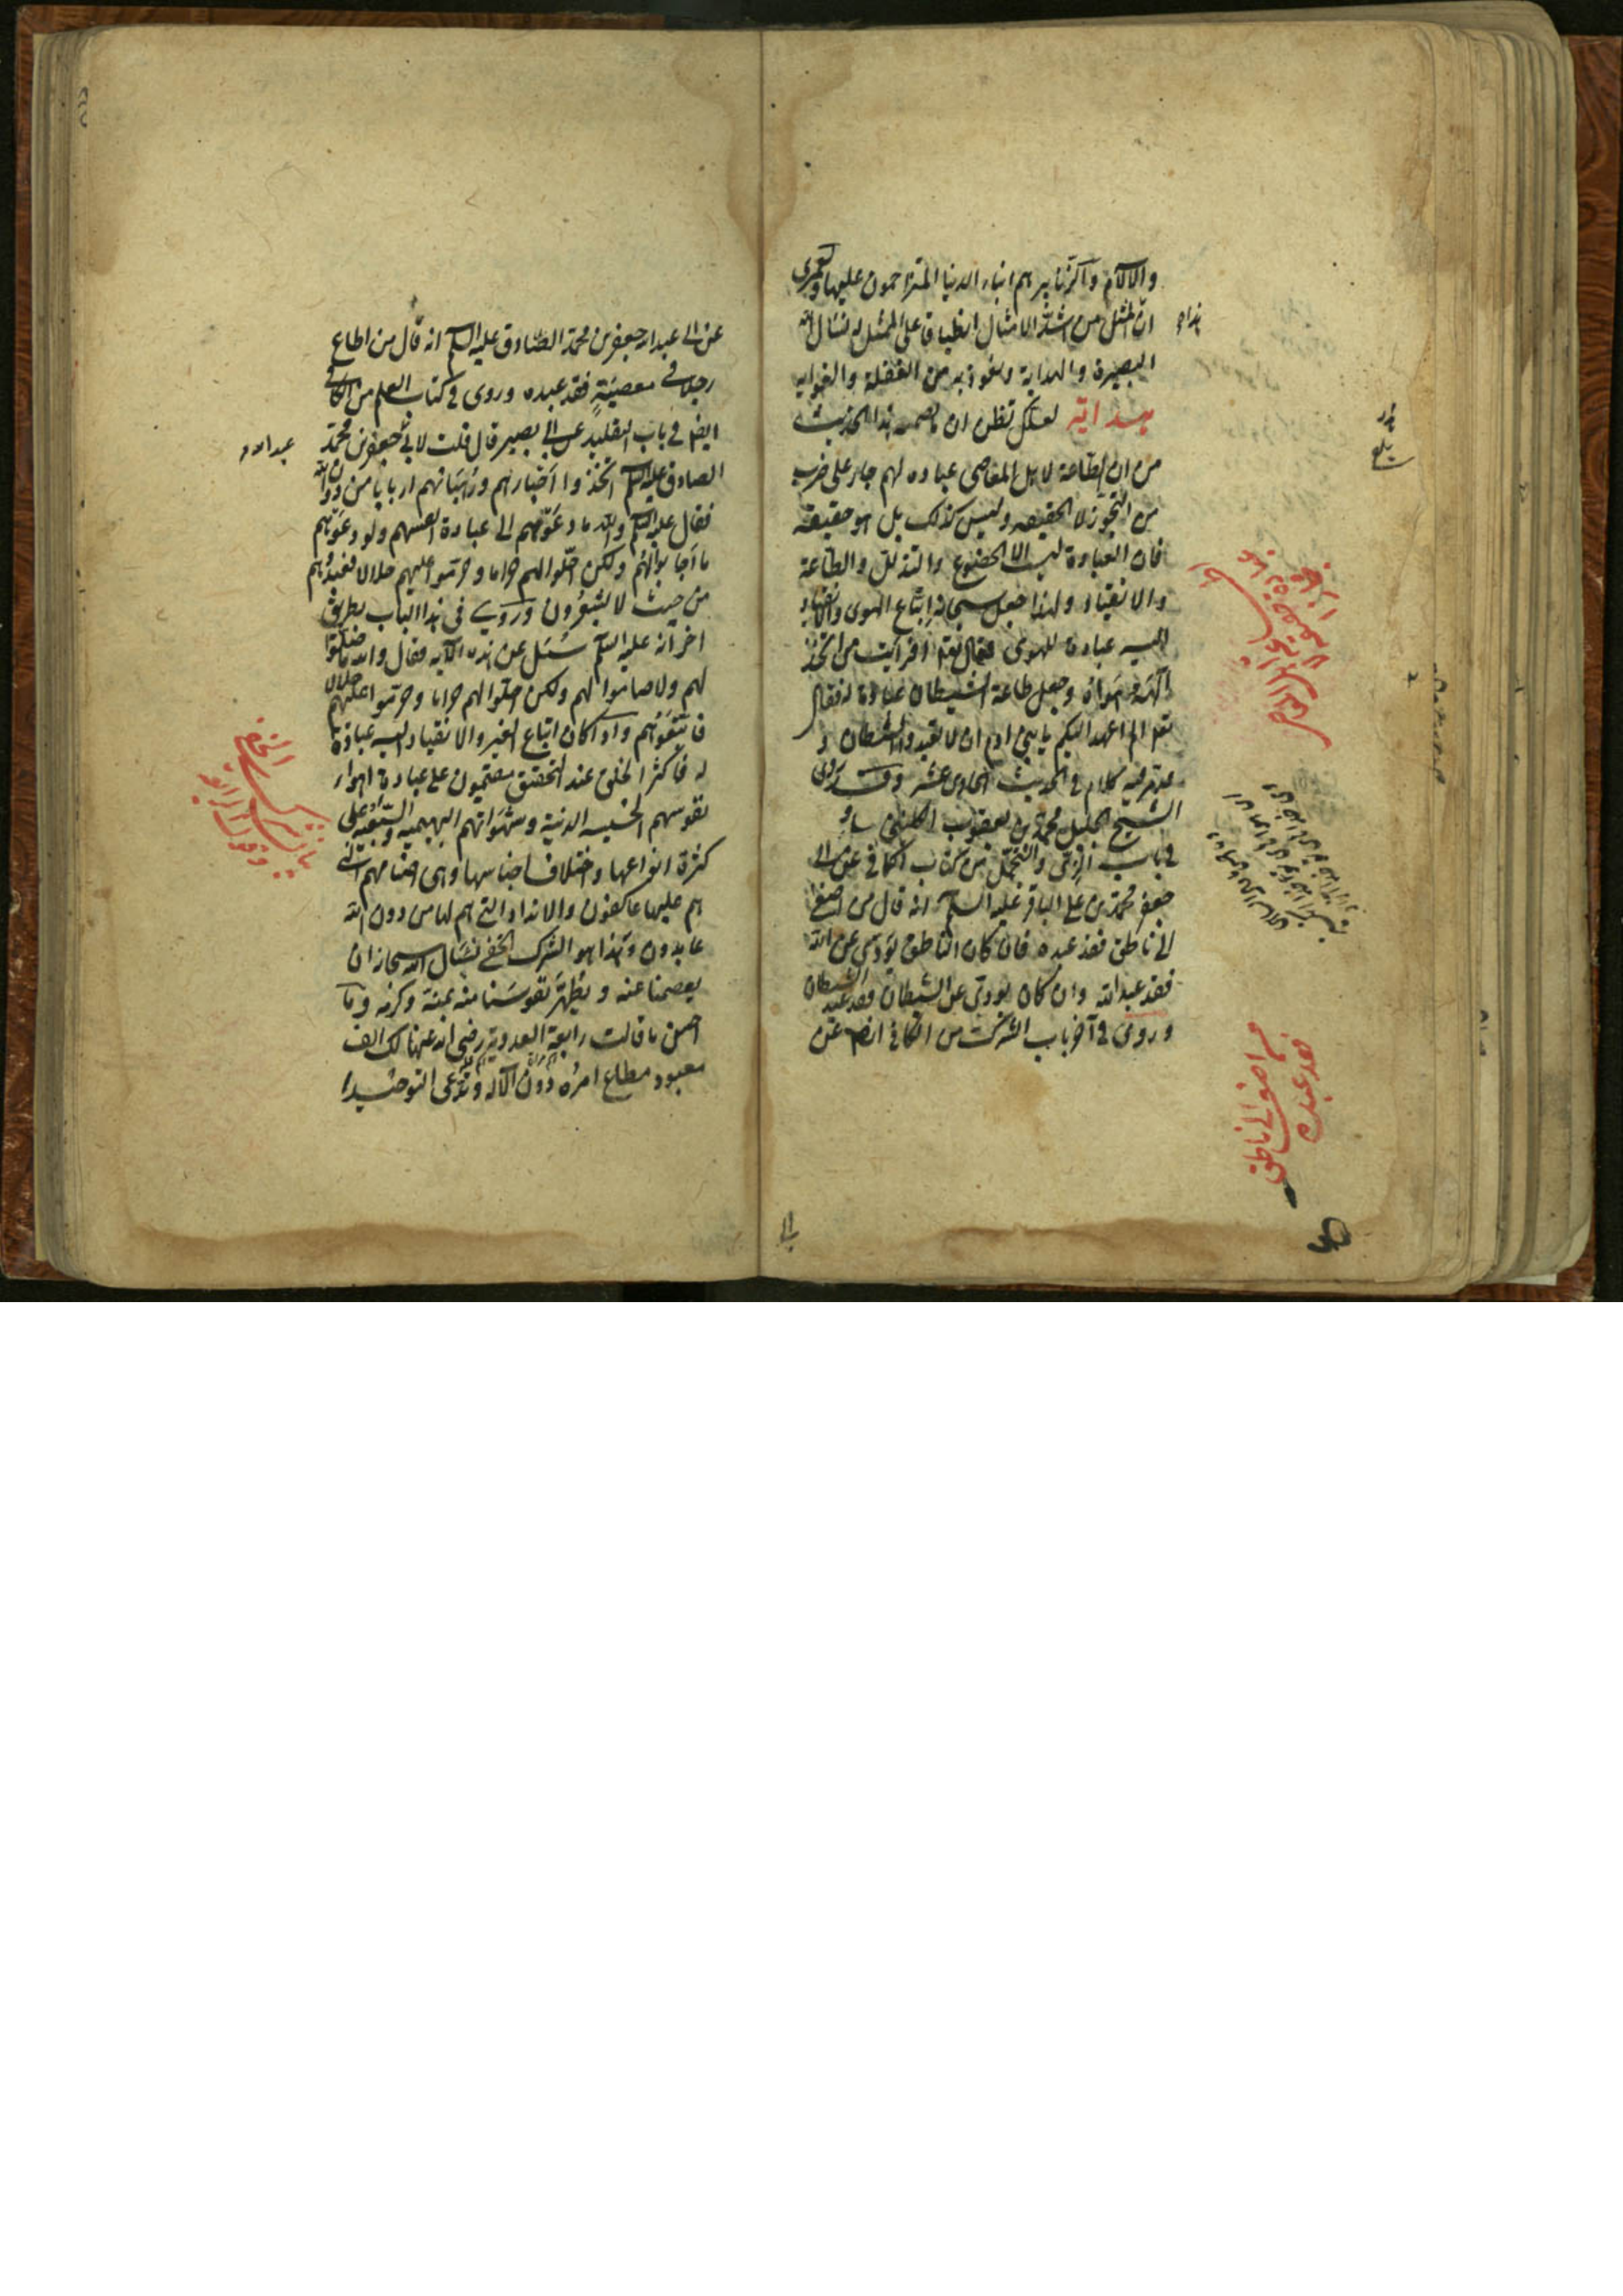 والالام والزنابير هم ابناء الدنيا المتزاحمون عليها ولعمری
ان المثل من اشد الامثال انطباقا على الممثل له نسال الله
البصيرة والهداية ونعوذ به من الغفلة والغواية
هداية لعلك تظن ان ما تضمنه هذا الحديث
من ان الطاعة لاهل المعاصی عبادة لهم جار على ضرب
من التجوز لا الحقيقه وليس كذلك بل هو حقيقة
فان العبادة ليست الا الخضوع والتذلل والطاعة
والانقياد ولهذا جعل سبحانه اتباع الهوى والانقياد
اليه عبادة للهوى فقال تعم افرايت من اتخذ
الهه هواه وجعل طاعة الشيطان عبادة له فقال
تعم الم اعهد اليكم يا بنی ادم ان لا تعبدوا الشيطان و
قد مر فيه كلام فی الحديث الحادی عشر وقد روى
الشيخ الجليل محمد بن يعقوب الكلينی
فی باب الرق والتجمل من كتاب الكافی عن ابی
جعفر محمد بن علی الباقر عليه السلم انه قال من اصغى
الى ناطق فقد عبده فان كان الناطق يؤدی عن الله
فقد عبد الله وان كان يؤدی عن الشيطان فقد عبد الشيطان
وروى فی آخر باب الشرك من الكافی ايضا عن
هذا
بلغ
من اصغى الى ناطق
فقد عبده
عن ابی عبد الله جعفر بن محمد الصادق عليه السلم انه قال من اطاع
رجلا فی معصية فقد عبده وروى فی كتاب العلم من الكافی
ايضا فی باب التقليد عن ابی بصير قال قلت لابی جعفر بن محمد
الصادق عليه السلم اتخذوا احبارهم ورهبانهم اربابا من دون الله
فقال عليه السلم والله ما دعوهم الى عبادة انفسهم ولو دعوهم
ما اجابوهم ولكن احلوا لهم حراما وحرموا عليهم حلالا فعبدوهم
من حيث لا يشعرون وروی فی هذا الباب بطريق
اخر انه عليه السلم سئل عن هذه الآيه فقال والله ما صلوا
لهم ولا صاموا لهم ولكن احلوا لهم حراما وحرموا عليهم حلالا
فاتبعوهم واذا كان اتباع الغير والانقياد اليه عبادة
له فاكثر الخلق عند التحقيق مقيمون على عبادة اهواء
نفوسهم الخسيسه الدنية وشهواتهم البهيميه والسبعيه على
كثرة انواعها واختلاف اجناسها وهی اصنامهم التی
هم عليها عاكفون والانداد التی هم لها من دون الله
عابدون وهذا هو الشرك الخفی نسال الله سبحانه ان
يعصمنا عنه ويطهر نفوسنا منه بمنه وكرمه وما
احسن ما قالت رابعة العدوية رضی الله عنها لك الف
معبود مطاع امره دون الاله وتدعی التوحيدا
عبد الله